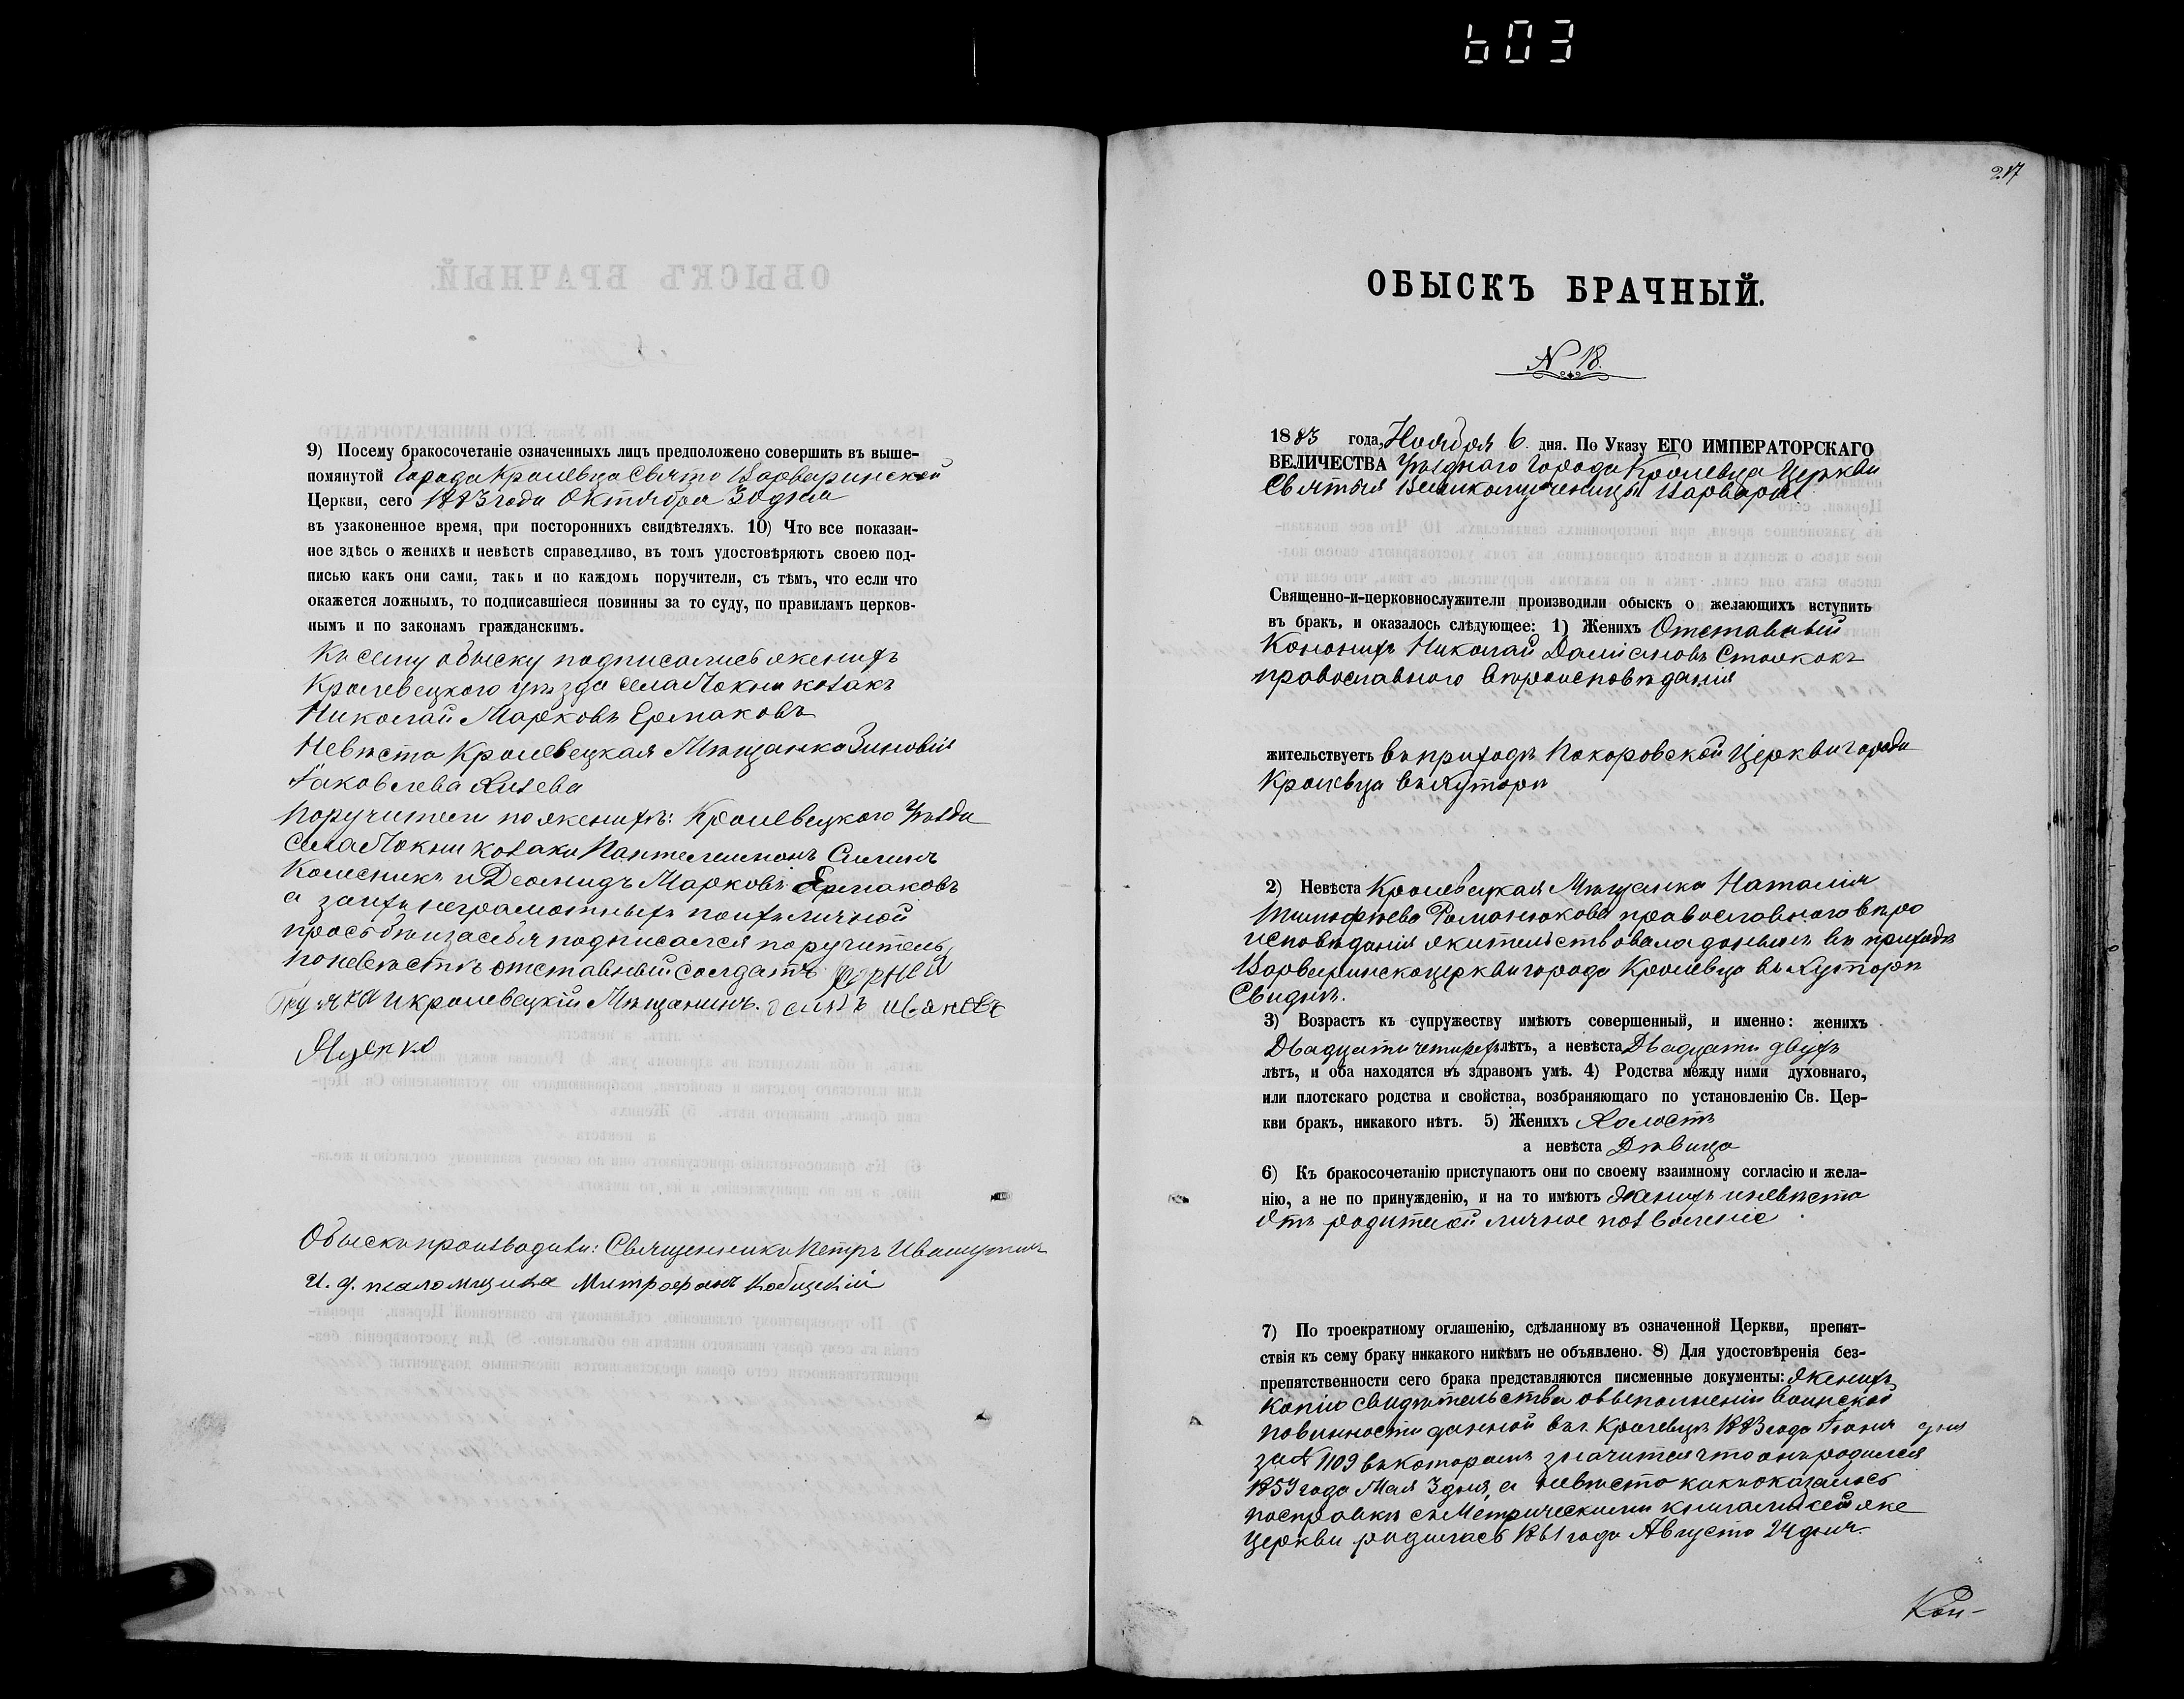 603
9) Посему бракосочетаніе означенныхъ лицъ предположено совершить въ выше-
помянутой Города Кролевца Свято Варваринской
Церкви, сего 1883 года Октября 30 дня
въ узаконенное время, при постороннихъ свидѣтеляхъ. 10) Что все показан-
ное здѣсь о женихѣ и невѣстѣ справедливо, въ томъ удостовѣряютъ своею под-
писью какъ они сами, такъ и по каждомъ поручители, съ тѣмъ, что если что
окажется ложнымъ, то подписавшіеся повинны за то суду, по правиламъ церков-
нымъ и по законамъ гражданскимъ.
Къ сему обыску подписались женихъ
Кролевецкого уѣзда села Локни козакъ
Николай Марковъ Ермаковъ
Невѣста Кролевецкая Мѣщанка Зиновія
Іаковлева
Поручители по женихѣ: Кролевецкого Уѣзда
села Локни козаки Пантелеимонъ Силинъ
Колесникъ и Леонидъ Марковъ Ермаковъ
а за ихъ неграмотныхъ по ихъ личной
просьбѣ и за себя подписался поручитель
по невѣстѣ отставный солдатъ
и кролевецкій Мѣщанинъ
Яценко
Обыскъ производили: Священникъ Петръ
И. д. псаломщика Митрофанъ
217
ОБЫСКЪ БРАЧНЫЙ.
N 18.
1883 года, Ноября 6 дня. По Указу ЕГО ИМПЕРАТОРСКАГО
ВЕЛИЧЕСТВА Уѣзднаго Города Кролевца Церкви
Святыя Великомученицы Варвары
Священно-и-церковнослужители производили обыскъ о желающихъ вступить
въ бракъ, и оказалось слѣдующее: 1) Женихъ Отставный
Николай Даміановъ
православного вѣроисповѣданія
жительствуетъ въ приходѣ Покоровской Церкви города
Кролевца въ Хуторѣ
2) Невѣста Кролевецкая Мѣщанка Наталія
Тимофѣева Романюкова православного вѣро
исповѣданія жительствовала донынѣ въ приходѣ
Варваринской церкви города Кролевца въ Хуторѣ
Свиднѣ.
3) Возрастъ къ супружеству имѣютъ совершенный, и именно: женихъ
Двадцати четырехъ лѣтъ, а невѣста Двадцати двухъ
лѣтъ, и оба находятся въ здравомъ умѣ. 4) Родства между ними духовнаго,
или плотскаго родства и свойства, возбраняющаго по установленію Св. Цер-
кви бракъ, никакого нѣтъ. 5) Женихъ Холостъ
а невѣста Дѣвица
6) Къ бракосочетанію приступаютъ они по своему взаимному согласію и жела-
нію, а не по принужденію, и на то имѣютъ Женихъ и невѣста
отъ родителей личное позволеніе
7) По троекратному оглашенію, сдѣланному въ означенной Церкви, препят-
ствія къ сему браку никакого никѣмъ не объявлено. 8) Для удостовѣренія без-
препятственности сего брака представляются писменные документы: Женихъ
Копію свидѣтельства о выполненіи воинской
повинности данной въ г. Кролевцѣ 1883 года Іюня дня
за N 1109 въ которомъ значится что онъ родился
1859 года Мая 3 дня, а невѣста какъ оказалось
по справкѣ съ Метрическими книгами сей же
церкви родилась 1861 года Августа 24 дня.